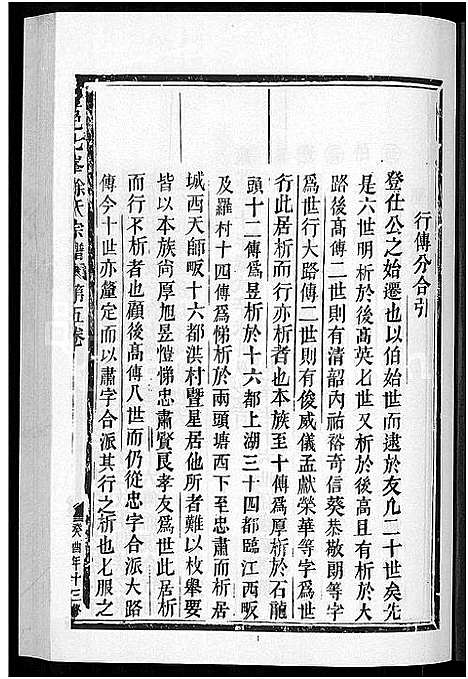 行傳分合引
登仕公之始遷也以伯始世而逮於友凡二十世矣先
是六世明析於後髙英七世又析於行且有析於大
路後髙傳二世則有清韶内祐裕奇信葵恭敬朗等字
爲世行大路傳二世則有俊威儀孟獻榮華等字爲世
行此居析而行亦析者也本族至十傳爲厚析於石龍
頭十二傳爲昱析於十六都上湖三十四都臨江西畈
及羅村十四傳爲悌析於兩頭塘西下至忠肅而析居
城西天師畈十六都洪村暨星居他所者難以枚舉要
皆以本族尚厚旭愷悌忠肅賢良孝友爲世此居析
而行不析者也顧後髙傳八世而仍從忠字合派大路
傳今十世亦釐定而以肅字合派其行之析也七服之
邑七峯徐氏宗譜 第五卷
癸酉年十三修